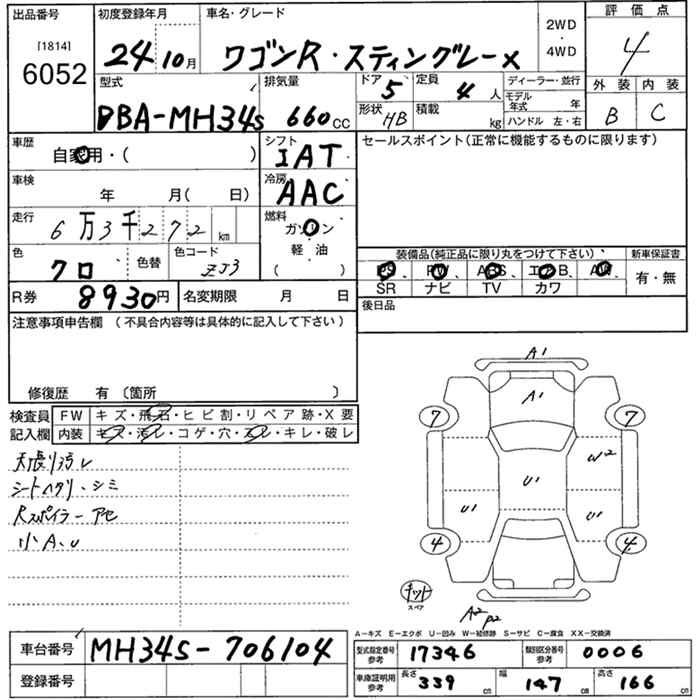 出品番号 初度登録年月 車名・グレード 2WD ・ 4WD 評価点
[1814]
6052
24 10月 ワゴンR・スティングレーX 4
型式 排気量 ドア 定員 ディーラー・並行 外装 内装
DBA-MH34S 660cc 5 4人 モデル年式 年 B C
形状 HB 積載 kg ハンドル 左・右
車歴 シフト セールスポイント(正常に機能するものに限ります)
自家用・( ) IAT
車検 冷房
年 月( 日) AAC
走行 燃料
6万3千272km ガソリン
色 色替 色コード 軽・油
クロ ZJ3 ( )
装備品(純正品に限り丸をつけて下さい) 新車保証書
PS、PW、ABS、エアB、AW 有・無
SR ナビ TV カワ
R券 8930円 名変期限 月 日 後日品
注意事項申告欄(不具合内容等は具体的に記入して下さい)
修復歴 有〔箇所 〕
検査員 FW キズ・飛石・ヒビ割・リペア跡・X要
記入欄 内装 キズ・汚レ・コゲ・穴・スレ・キレ・破レ
天張り汚レ
シートヘタリ・シミ
Rスポイラーアセ
小A、U
A1
A1
7 7
W2
U1
U1 U1
4 4
キット
スペア
A2 P2
A-キズ E-エクボ U-凹み W-補修跡 S-サビ C-腐食 XX-交換済
車台番号 MH34S-706104
登録番号
型式指定番号 参考 17346 類別区分番号 参考 0006
車庫証明用 参考 長さ 339cm 幅 147cm 高さ 166cm